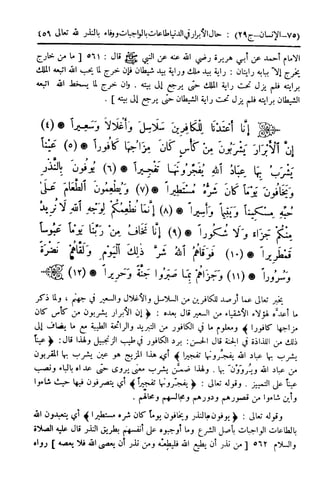 (٧٥- الإنسان-ج٢٩) : حال الأبرار في الدنيا طاعات بالواجبات ووفاء بالنذر لله تعالى ٤٥٦
الإمام أحمد عن أبي هريرة رضي الله عنه عن النبي ﷺ قال : ٥٦١ [ ما من خارج
يخرج إلا ببابه رايتان : راية بيد ملك وراية بيد شيطان فإن خرج لما يحب الله اتبعه الملك
برايته فلم يزل تحت راية الملك حتى يرجع إلى بيته . وإن خرج لما يسخط الله اتبعه
الشيطان برايته فلم يزل تحت راية الشيطان حتى يرجع إلى بيته ] .
إِنَّا أَعْتَدْنَا لِلْكَافِرِينَ سَلَاسِلَ وَأَغْلَالًا وَسَعِيرًا (٤)
إِنَّ الْأَبْرَارَ يَشْرَبُونَ مِنْ كَأْسٍ كَانَ مِزَاجُهَا كَافُورًا (٥) عَيْنًا
يَشْرَبُ بِهَا عِبَادُ اللَّهِ يُفَجِّرُونَهَا تَفْجِيرًا (٦) يُوفُونَ بِالنَّذْرِ
وَيَخَافُونَ يَوْمًا كَانَ شَرُّهُ مُسْتَطِيرًا (٧) وَيُطْعِمُونَ الطَّعَامَ عَلَى
حُبِّهِ مِسْكِينًا وَيَتِيمًا وَأَسِيرًا (٨) إِنَّمَا نُطْعِمُكُمْ لِوَجْهِ اللَّهِ لَا نُرِيدُ
مِنْكُمْ جَزَاءً وَلَا شُكُورًا (٩) إِنَّا نَخَافُ مِنْ رَبِّنَا يَوْمًا عَبُوسًا
قَمْطَرِيرًا (١٠) فَوَقَاهُمُ اللَّهُ شَرَّ ذَلِكَ الْيَوْمِ وَلَقَّاهُمْ نَضْرَةً
وَسُرُورًا (١١) وَجَزَاهُمْ بِمَا صَبَرُوا جَنَّةً وَحَرِيرًا (١٢)
يخبر تعالى عما أرصد للكافرين من السلاسل والأغلال والسعير في جهنم ، ولما ذكر
ما أعده لهؤلاء الأشقياء من السعير قال بعده : ﴿ إن الأبرار يشربون من كأس كان
مزاجها كافوراً ﴾ ومعلوم ما في الكافور من التبريد والرائحة الطيبة مع ما يضاف إلى
ذلك من اللذاذة في الجنة قال الحسن: برد الكافور في طيب الزنجبيل ولهذا قال: ﴿ عيناً
يشرب بها عباد الله يفجرونها تفجيراً ﴾ أي هذا المزيج هو عين يشرب بها المقربون
من عباد الله ويُروَون بها . ولهذا ضمّن يشرب معنى يروى حتى عداه بالباء ونصب
عيناً على التمييز . وقوله تعالى : ﴿ يفجرونها تفجيراً ﴾ أي يتصرفون فيها حيث شاءوا
وأين شاءوا من قصورهم ودورهم ومجالسهم ومحالهم .
وقوله تعالى : ﴿ يوفون بالنذر ويخافون يوماً كان شره مستطيراً ﴾ أي يتعبدون الله
بالطاعات الواجبات بأصل الشرع وما أوجبوه على أنفسهم بطريق النذر قال عليه الصلاة
والسلام ٥٦٢ [ من نذر أن يطيع الله فليطعه ومن نذر أن يعصي الله فلا يعصه ] رواه